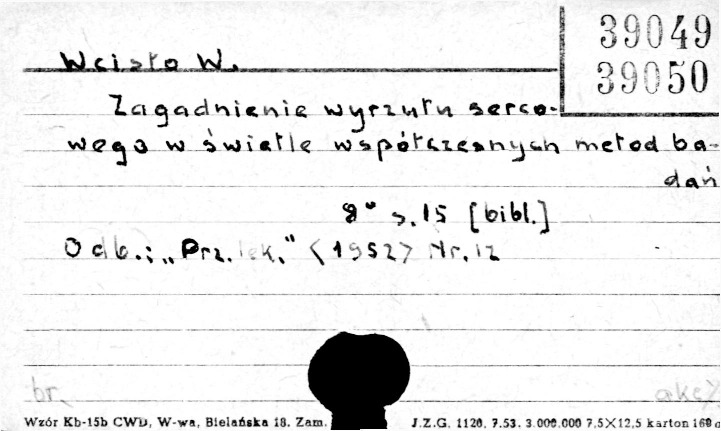 39049
39050
Wcisło W.
Zagadnienie wyrzutu serco-
wego w świetle współczesnych metod ba-
dań
8° s. 15 [bibl.]
Odb.: „Prz. lek." <1952> Nr. 12
br. akc
Wzór Kb-15b CWD, W-wa, Bielańska 18. Zam. J.Z.G. 1120. 7.53. 3.000.000 7,5×12,5 karton 160 g